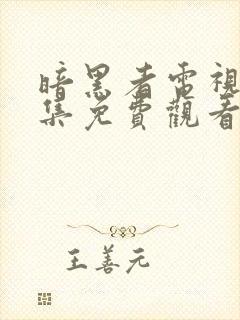 暗黑者電視
集免費觀看
王善元